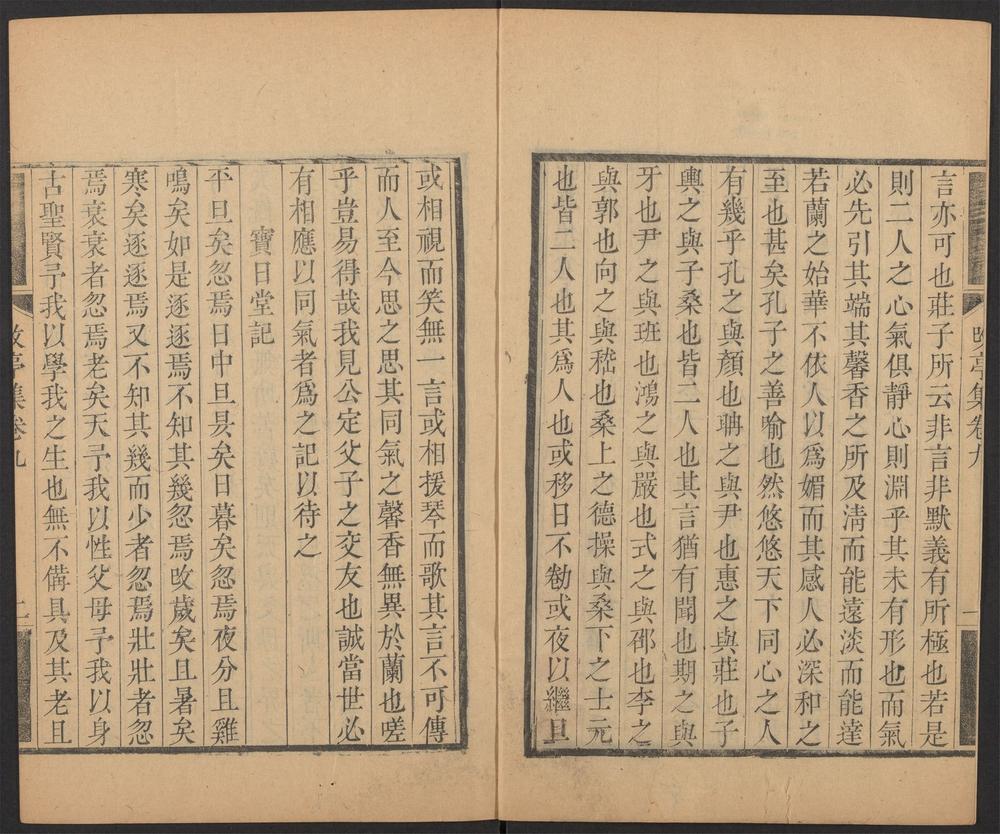 改亭集卷九
一
言亦可也莊子所云非言非默義有所極也若是
則二人之心氣俱靜心則淵乎其未有形也而氣
必先引其端其馨香之所及清而能遠淡而能達
若蘭之始華不依人以爲媚而其感人必深和之
至也甚矣孔子之善喻也然悠悠天下同心之人
有幾乎孔之與顏也聃之與尹也惠之與莊也子
輿之與子桑也皆二人也其言猶有聞也期之與
牙也尹之與班也鴻之與嚴也式之與邵也李之
與郭也向之與嵇也桑上之德操與桑下之士元
也皆二人也其爲人也或移日不勌或夜以繼旦
或相視而笑無一言或相援琴而歌其言不可傳
而人至今思之思其同氣之馨香無異於蘭也嗟
乎豈易得哉我見公定父子之交友也誠當世必
有相應以同氣者爲之記以待之
寶日堂記
平旦矣忽焉日中旦昃矣日暮矣忽焉夜分且雞
鳴矣如是逐逐焉不知其幾忽焉改歲矣且暑矣
寒矣逐逐焉又不知其幾而少者忽焉壯壯者忽
焉衰衰者忽焉老矣天予我以性父母予我以身
古聖賢予我以學我之生也無不備具及其老且
改亭集卷九
二